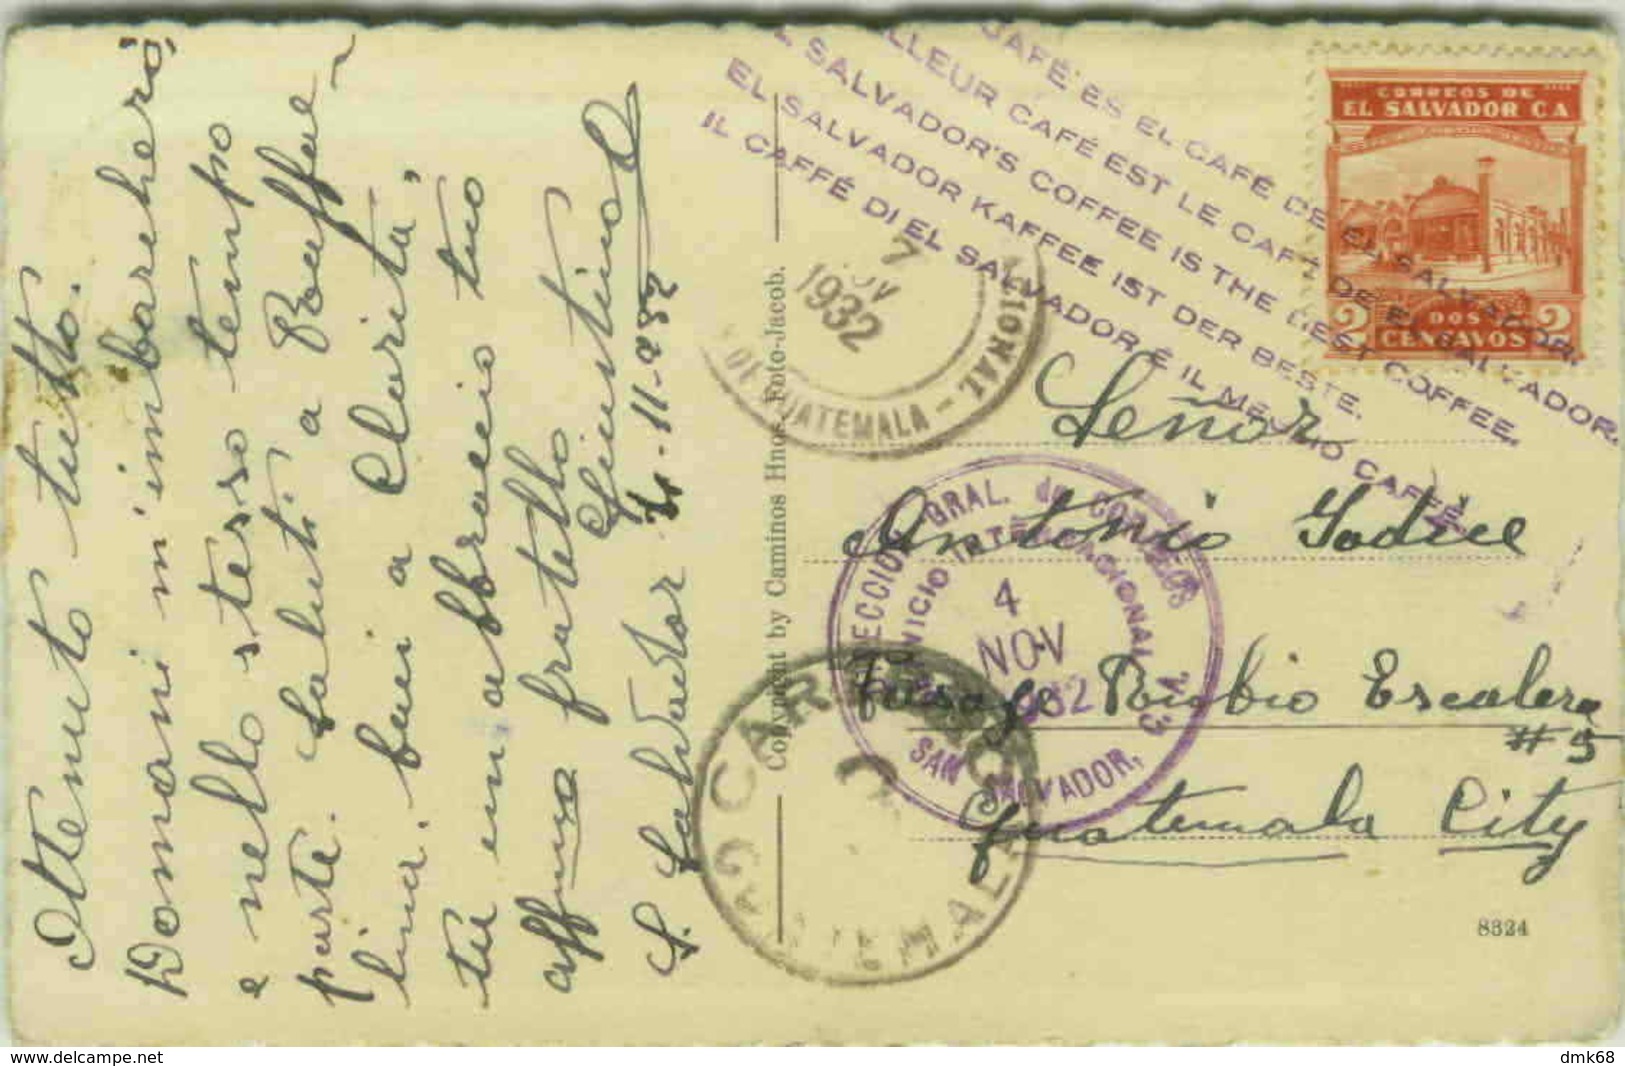 Ottenuto tutto.
Domani m'imbarcherò,
e nello stesso tempo
parte. Saluti a Raffae-
lina. Baci a Clarita,
tu un abbraccio tuo
affmo fratello
Giustino
S. Salvador 4-11-932
Copyright by Caminos Hnos. Foto-Jacob.
CAFÉ ES EL CAFÉ DE EL SALVADOR.
LLEUR CAFÉ EST LE CAFÉ DE EL SALVADOR.
L SALVADOR'S COFFEE IS THE BEST COFFEE.
EL SALVADOR KAFFEE IST DER BESTE.
IL CAFFÉ DI EL SALVADOR É IL MEGLIO CAFFÉ
CORREOS DE
EL SALVADOR C A
2 DOS 2
CENTAVOS
7
NOV
1932
GUATEMALA
Señor
Antonio Iodice
Pasaje Rubio Escalera
# 5
Guatemala City
ECCION GRAL. de CORREOS
VICIO INTERNACIONAL
4
NOV
932
SAN SALVADOR, C. A.
CAR
2
8324
www.delcampe.net
dmk68